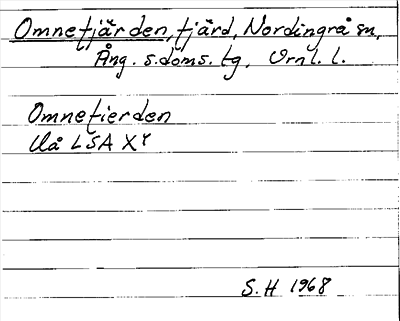 Omnefjärden, fjärd, Nordingrå sn,
Ång. s. doms. tg, Örnl. l.
Omnefierden
Uå LSA XY
S.H 1968